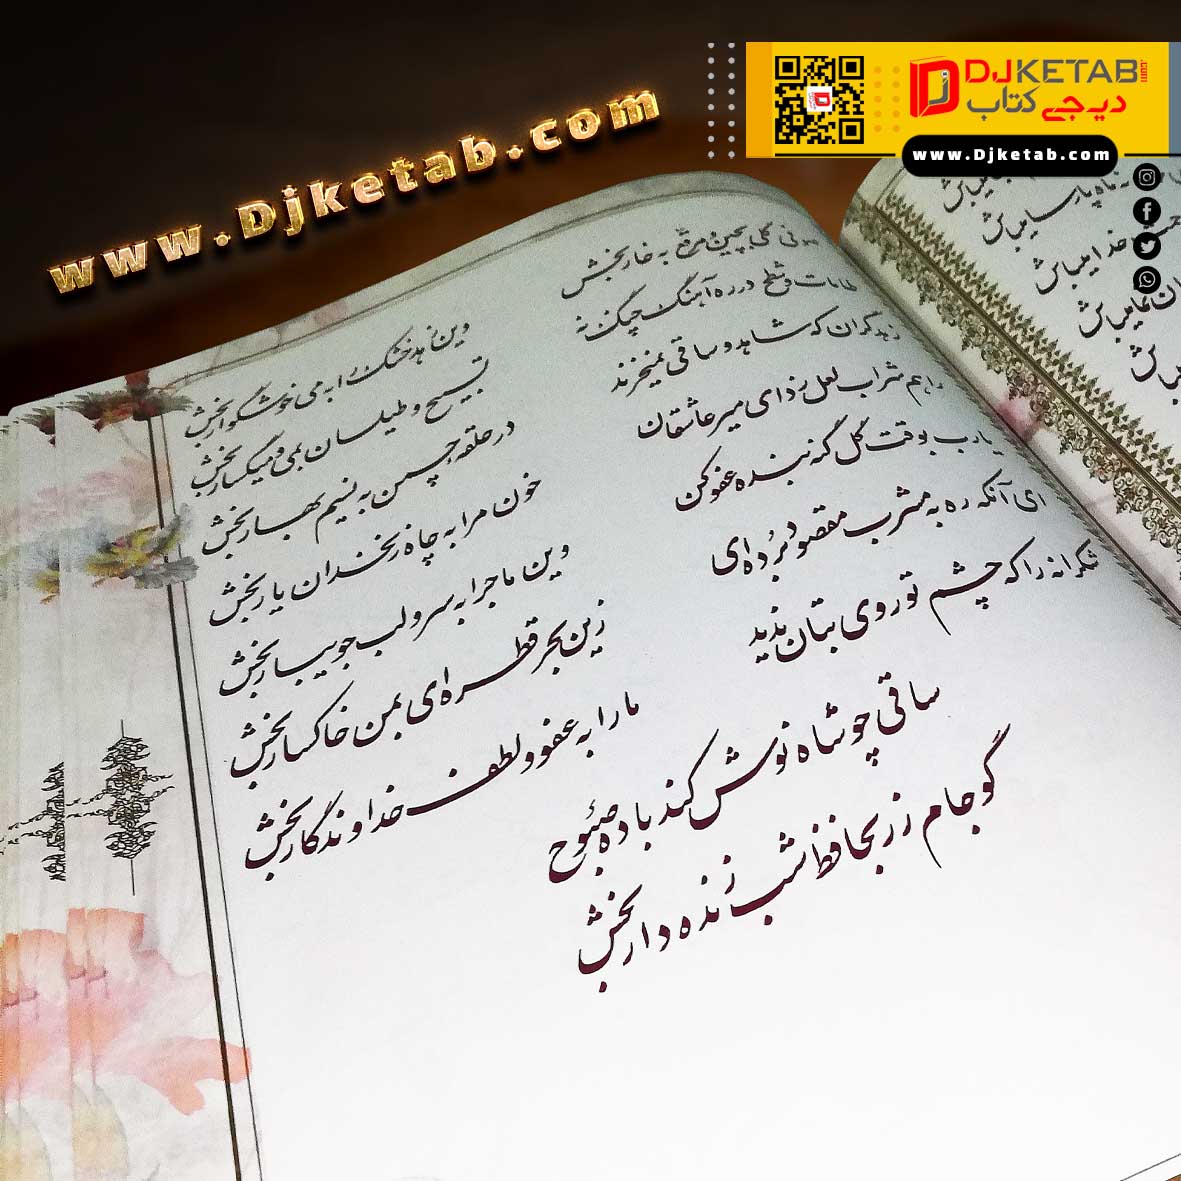 DJKETAB.com
دیجی کتاب
www.Djketab.com
www.Djketab.com
صوفی گلی بچین و مرقع به خار بخش
وین زهد خشک را به می خوشگوار بخش
طامات و شطح در ره آهنگ چنگ نه
تسبیح و طیلسان بمی و میگسار بخش
زهد گران که شاهد و ساقی نمیخرند
در حلقه چمن به نسیم بهار بخش
راهم شراب لعل زد ای میر عاشقان
خون مرا به چاه زنخدان یار بخش
یارب بوقت گل گنه بنده عفو کن
وین ماجرا به سرو لب جویبار بخش
ای آنکه ره به مشرب مقصود بُرده‌ای
زین بحر قطره‌ای بمن خاکسار بخش
شکرانه را که چشم تو روی بتان ندید
ما را به عفو و لطف خداوندگار بخش
ساقی چو شاه نوش کند باده صبوح
گو جام زر بحافظ شب زنده دار بخش
پارسا میباش
خدا میباش
میباش